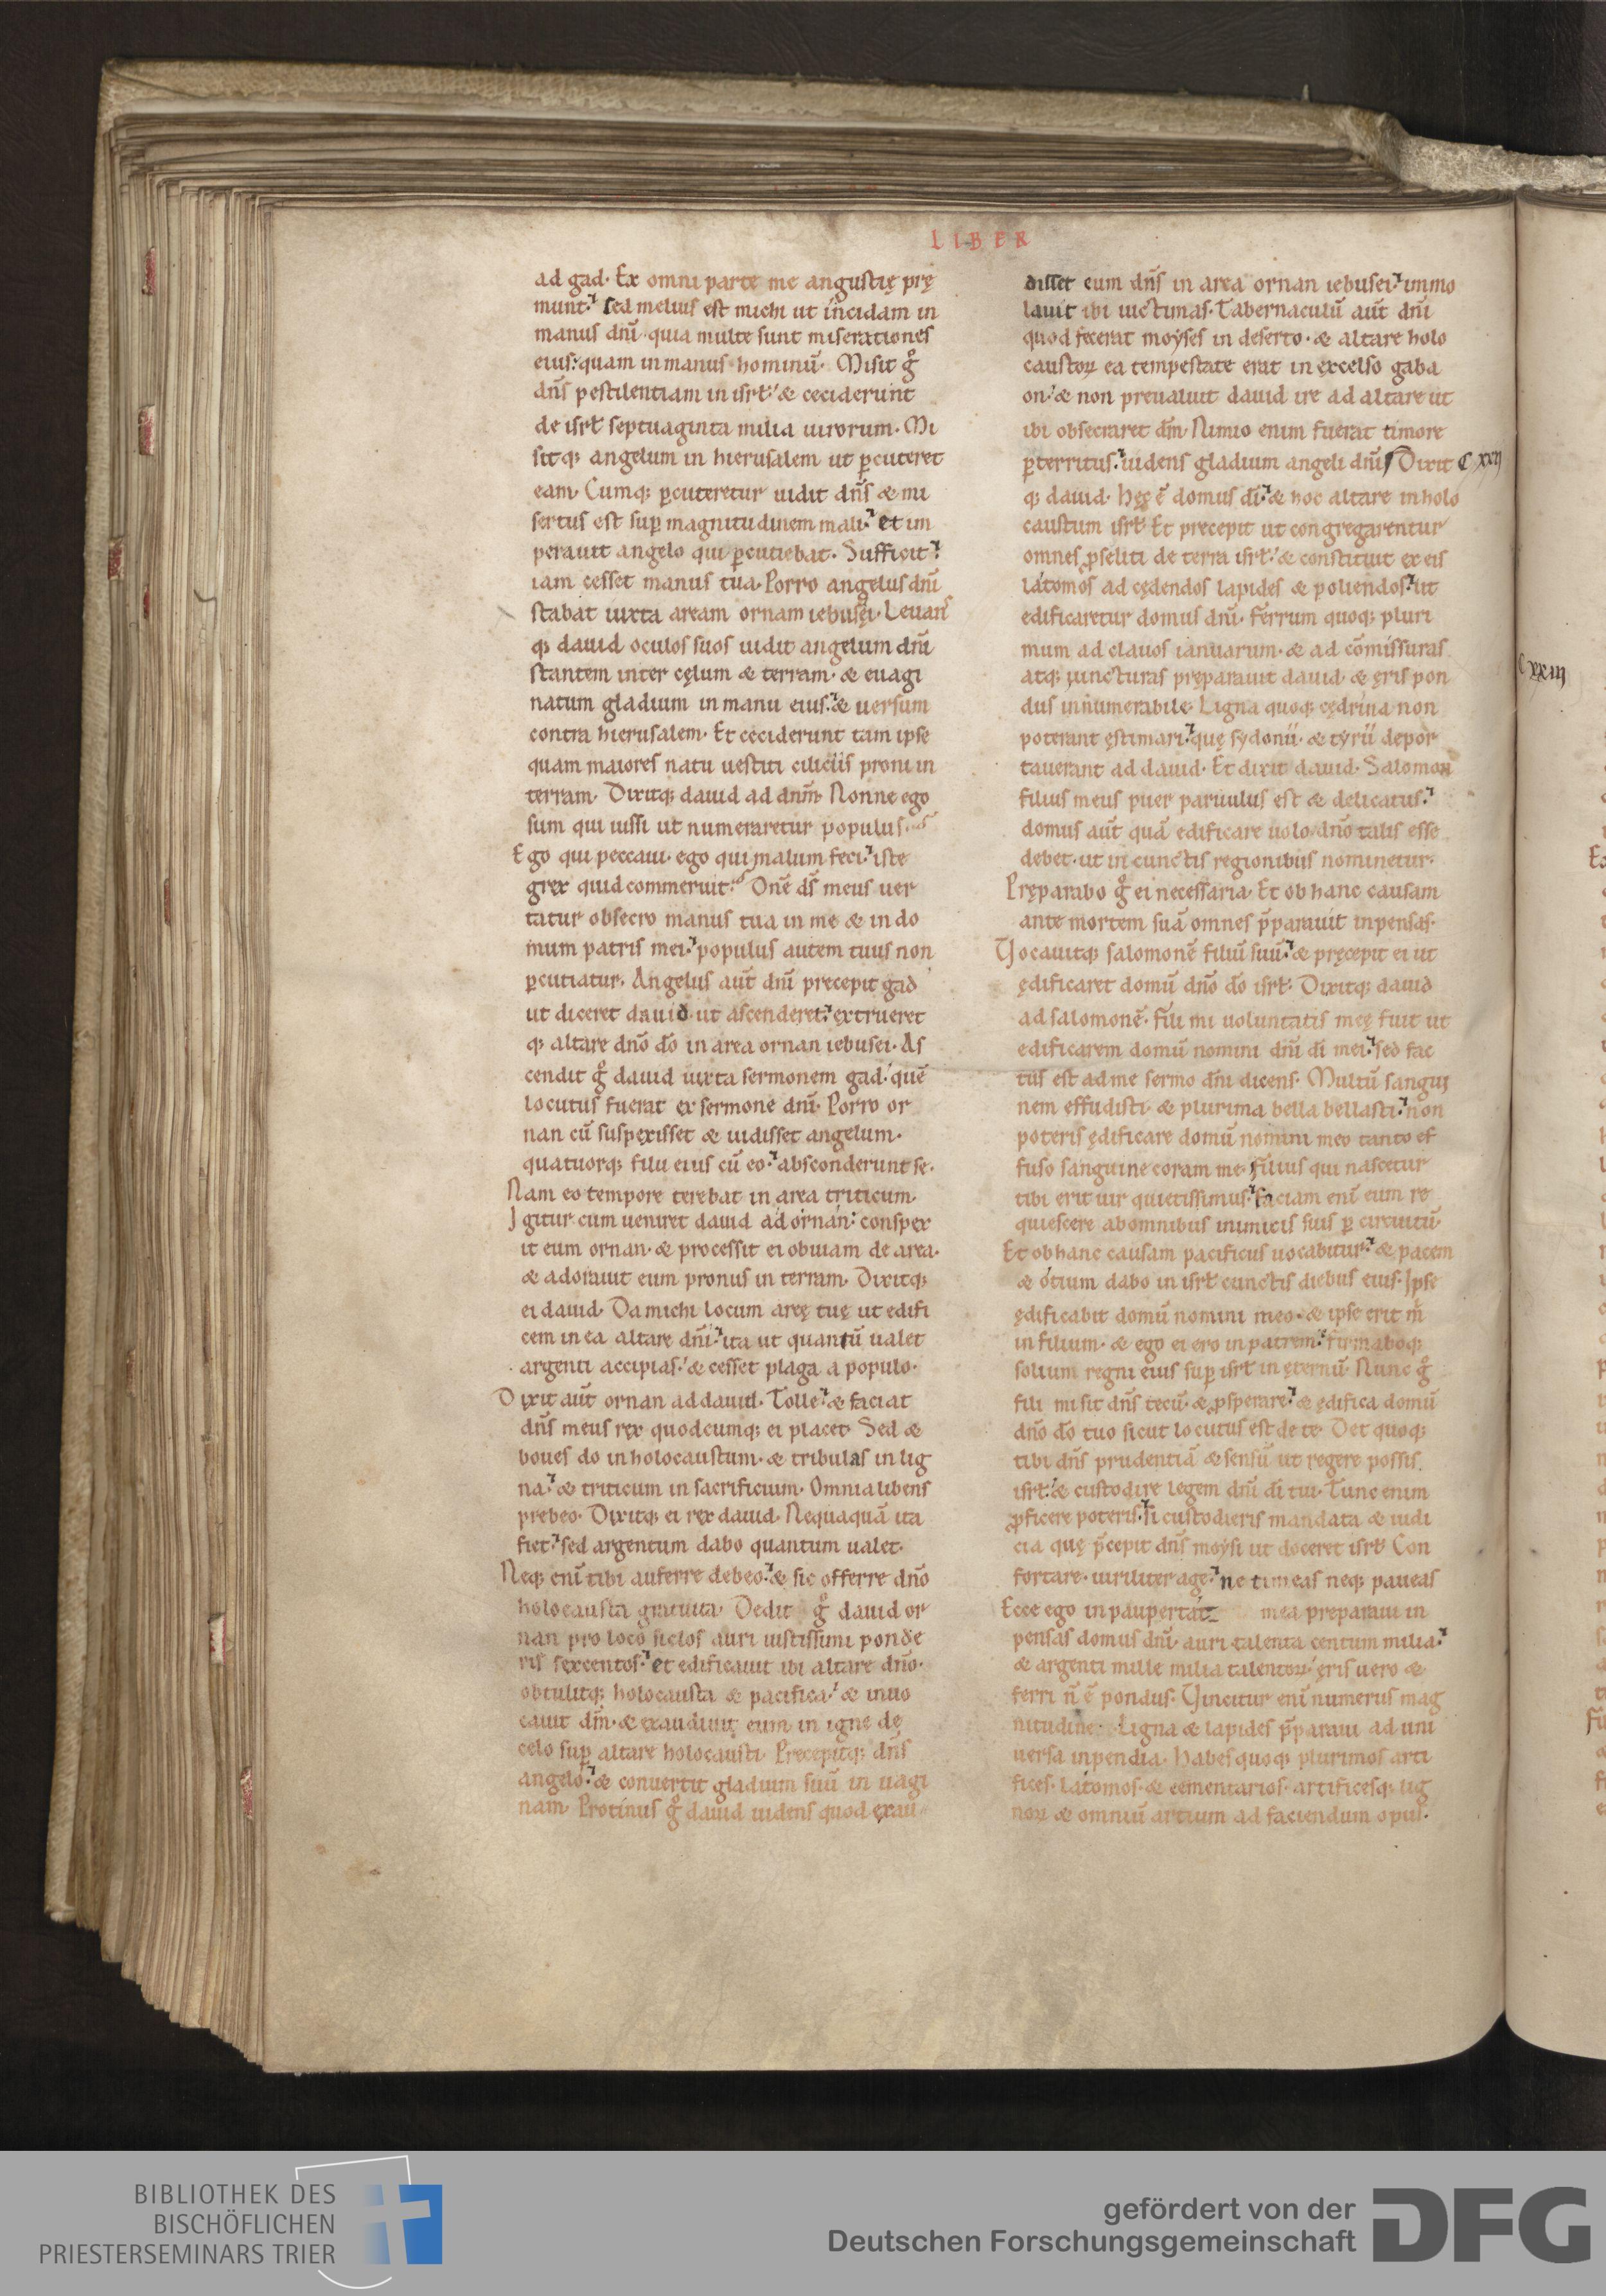 LIBER
ad gad. Ex omni parte me angustię prę
munt. sed melius est michi ut incidam in
manus dn̄i quia multe sunt miserationes
eius: quam in manus hominū. Misit gͦ
dn̄s pestilentiam in isrł. & ceciderunt
de isrł septuaginta milia uirorum. Mi
sitq; angelum in hierusalem ut ꝑcuteret
eam. Cumq; ꝑcuteretur uidit dn̄s & mi
sertus est suꝑ magnitudinem mali. et im
perauit angelo qui ꝑcutiebat. Sufficit.
iam cesset manus tua. Porro angelus dn̄i
stabat iuxta aream ornam iebusęi. Leuans
q; dauid oculos suos uidit angelum dn̄i
stantem inter cęlum & terram. & euagi
natum gladium in manu eius. & uersum
contra hierusalem. Et ceciderunt tam ipse
quam maiores natu uestiti ciliciis proni in
terram. Dixitq; dauid ad dnm̄. Nonne ego
sum qui iussi ut numeraretur populus.
Ego qui peccaui. ego qui malum feci. iste
grex quid commeruit. Dn̄e ds̄ meus uer
tatur obsecro manus tua in me & in do
mum patris mei. populus autem tuus non
ꝑcutiatur. Angelus aūt dn̄i precepit gad
ut diceret dauid. ut ascenderet. extrueret
q; altare dn̄o dō in area ornan iebusei. As
cendit gͦ dauid iuxta sermonem gad. quē
locutus fuerat ex sermone dn̄i. Porro or
nan cū suspexisset & uidisset angelum.
quatuorq; filii eius cū eo. absconderunt se.
Nam eo tempore terebat in area triticum.
Igitur cum ueniret dauid ad ornan: conspex
it eum ornan. & processit ei obuiam de area.
& adorauit eum pronus in terram. Dixitq;
ei dauid. Da michi locum areę tuę ut edifi
cem in ea altare dn̄i. ita ut quantū ualet
argenti accipias. & cesset plaga a populo.
Dixit aūt ornan ad dauid. Tolle. & faciat
dn̄s meus rex quodcumq; ei placet. Sed &
boues do in holocaustum. & tribulas in lig
na. & triticum in sacrificium. Omnia libens
prebeo. Dixitq; ei rex dauid. Nequaquā ita
fiet. sed argentum dabo quantum ualet.
Neq; enī tibi auferre debeo. & sic offerre dn̄o
holocausta gratuita. Dedit gͦ dauid or
nan pro loco siclos auri iustissimi ponde
ris sexcentos. et edificauit ibi altare dn̄o.
obtulitq; holocausta & pacifica. & inuo
cauit dm̄. & exaudiuit eum in igne de
celo suꝑ altare holocausti. Precepitq; dn̄s
angelo. & conuertit gladium suū in uagi
nam. Protinus gͦ dauid uidens quod exau
disset eum dn̄s in area ornan iebusei. immo
lauit ibi uictimas. Tabernaculū aūt dn̄i
quod fecerat moyses in deserto. & altare holo
caustoꝝ ea tempestate erat in excelso gaba
on. & non preualuit dauid ire ad altare ut
ibi obsecraret dm̄. Nimio enim fuerat timore
ꝑterritus. uidens gladium angeli dn̄i. Dixit C xxii
q; dauid. Hęc ē domus dī. & hoc altare in holo
caustum isrł. Et precepit ut congregarentur
omnes ꝓseliti de terra isrł. & constituit ex eis
latomos ad cędendos lapides & poliendos. ut
edificaretur domus dn̄i. ferrum quoq; pluri
mum ad clauos ianuarum. & ad cōmissuras
atq; iuncturas pręparauit dauid. & ęris pon
dus innumerabile. Ligna quoq; cędrina non
poterant ęstimari. quę sydonii. & tyrii depor
tauerant ad dauid. Et dixit dauid. Salomon
filius meus puer paruulus est & delicatus.
domus aūt quā edificare uolo dn̄o talis esse
debet. ut in cunctis regionibus nominetur.
Pręparabo gͦ ei necessaria. Et ob hanc causam
ante mortem suā omnes p̄parauit inpensas.
Vocauitq; salomonē filiū suū. & pręcepit ei ut
ędificaret domū dn̄o dō isrł. Dixitq; dauid
ad salomonē. fili mi uoluntatis meę fuit ut
edificarem domū nomini dn̄i dī mei. sed fac
tus est ad me sermo dn̄i dicens. Multū sangui
nem effudisti. & plurima bella bellasti. non
poteris ędificare domū nomini meo tanto ef
fuso sanguine coram me. filius qui nascetur
tibi erit uir quietissimus. faciam enī eum re
quiescere ab omnibus inimicis suis ꝑ circuitū.
Et ob hanc causam pacificus uocabitur. & pacem
& otium dabo in isrł cunctis diebus eius. Ipse
ędificabit domū nomini meo. & ipse erit m̄
in filium. & ego ei ero in patrem. firmaboq;
solium regni eius suꝑ isrł in ęternū. Nunc gͦ
fili mi sit dn̄s tecū. & ꝓsperare. & ędifica domū
dn̄o dō tuo sicut locutus est de te. Det quoq;
tibi dn̄s prudentiā & sensū ut regere possis
isrł. & custodire legem dn̄i dī tui. Tunc enim
ꝓficere poteris. si custodieris mandata & iudi
cia quę p̄cepit dn̄s moysi ut doceret isrł. Con
fortare. uiriliter age. ne timeas neq; paueas
Ecce ego in paupertate mea preparaui in
pensas domus dn̄i. auri talenta centum milia.
& argenti mille milia talentoꝝ. ęris uero &
ferri n̄ ē pondus. Vincitur enī numerus mag
nitudine. Ligna & lapides p̄paraui ad uni
uersa inpendia. Habes quoq; plurimos arti
fices. latomos. & cementarios. artificesq; lig
noꝝ & omniū artium ad faciendum opus.
C xxiii
BIBLIOTHEK DES
BISCHÖFLICHEN
PRIESTERSEMINARS TRIER
gefördert von der
Deutschen Forschungsgemeinschaft
DFG